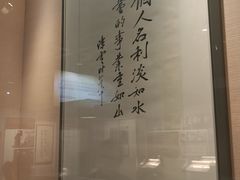 個人名利淡如水
的事業重如山
陳雲